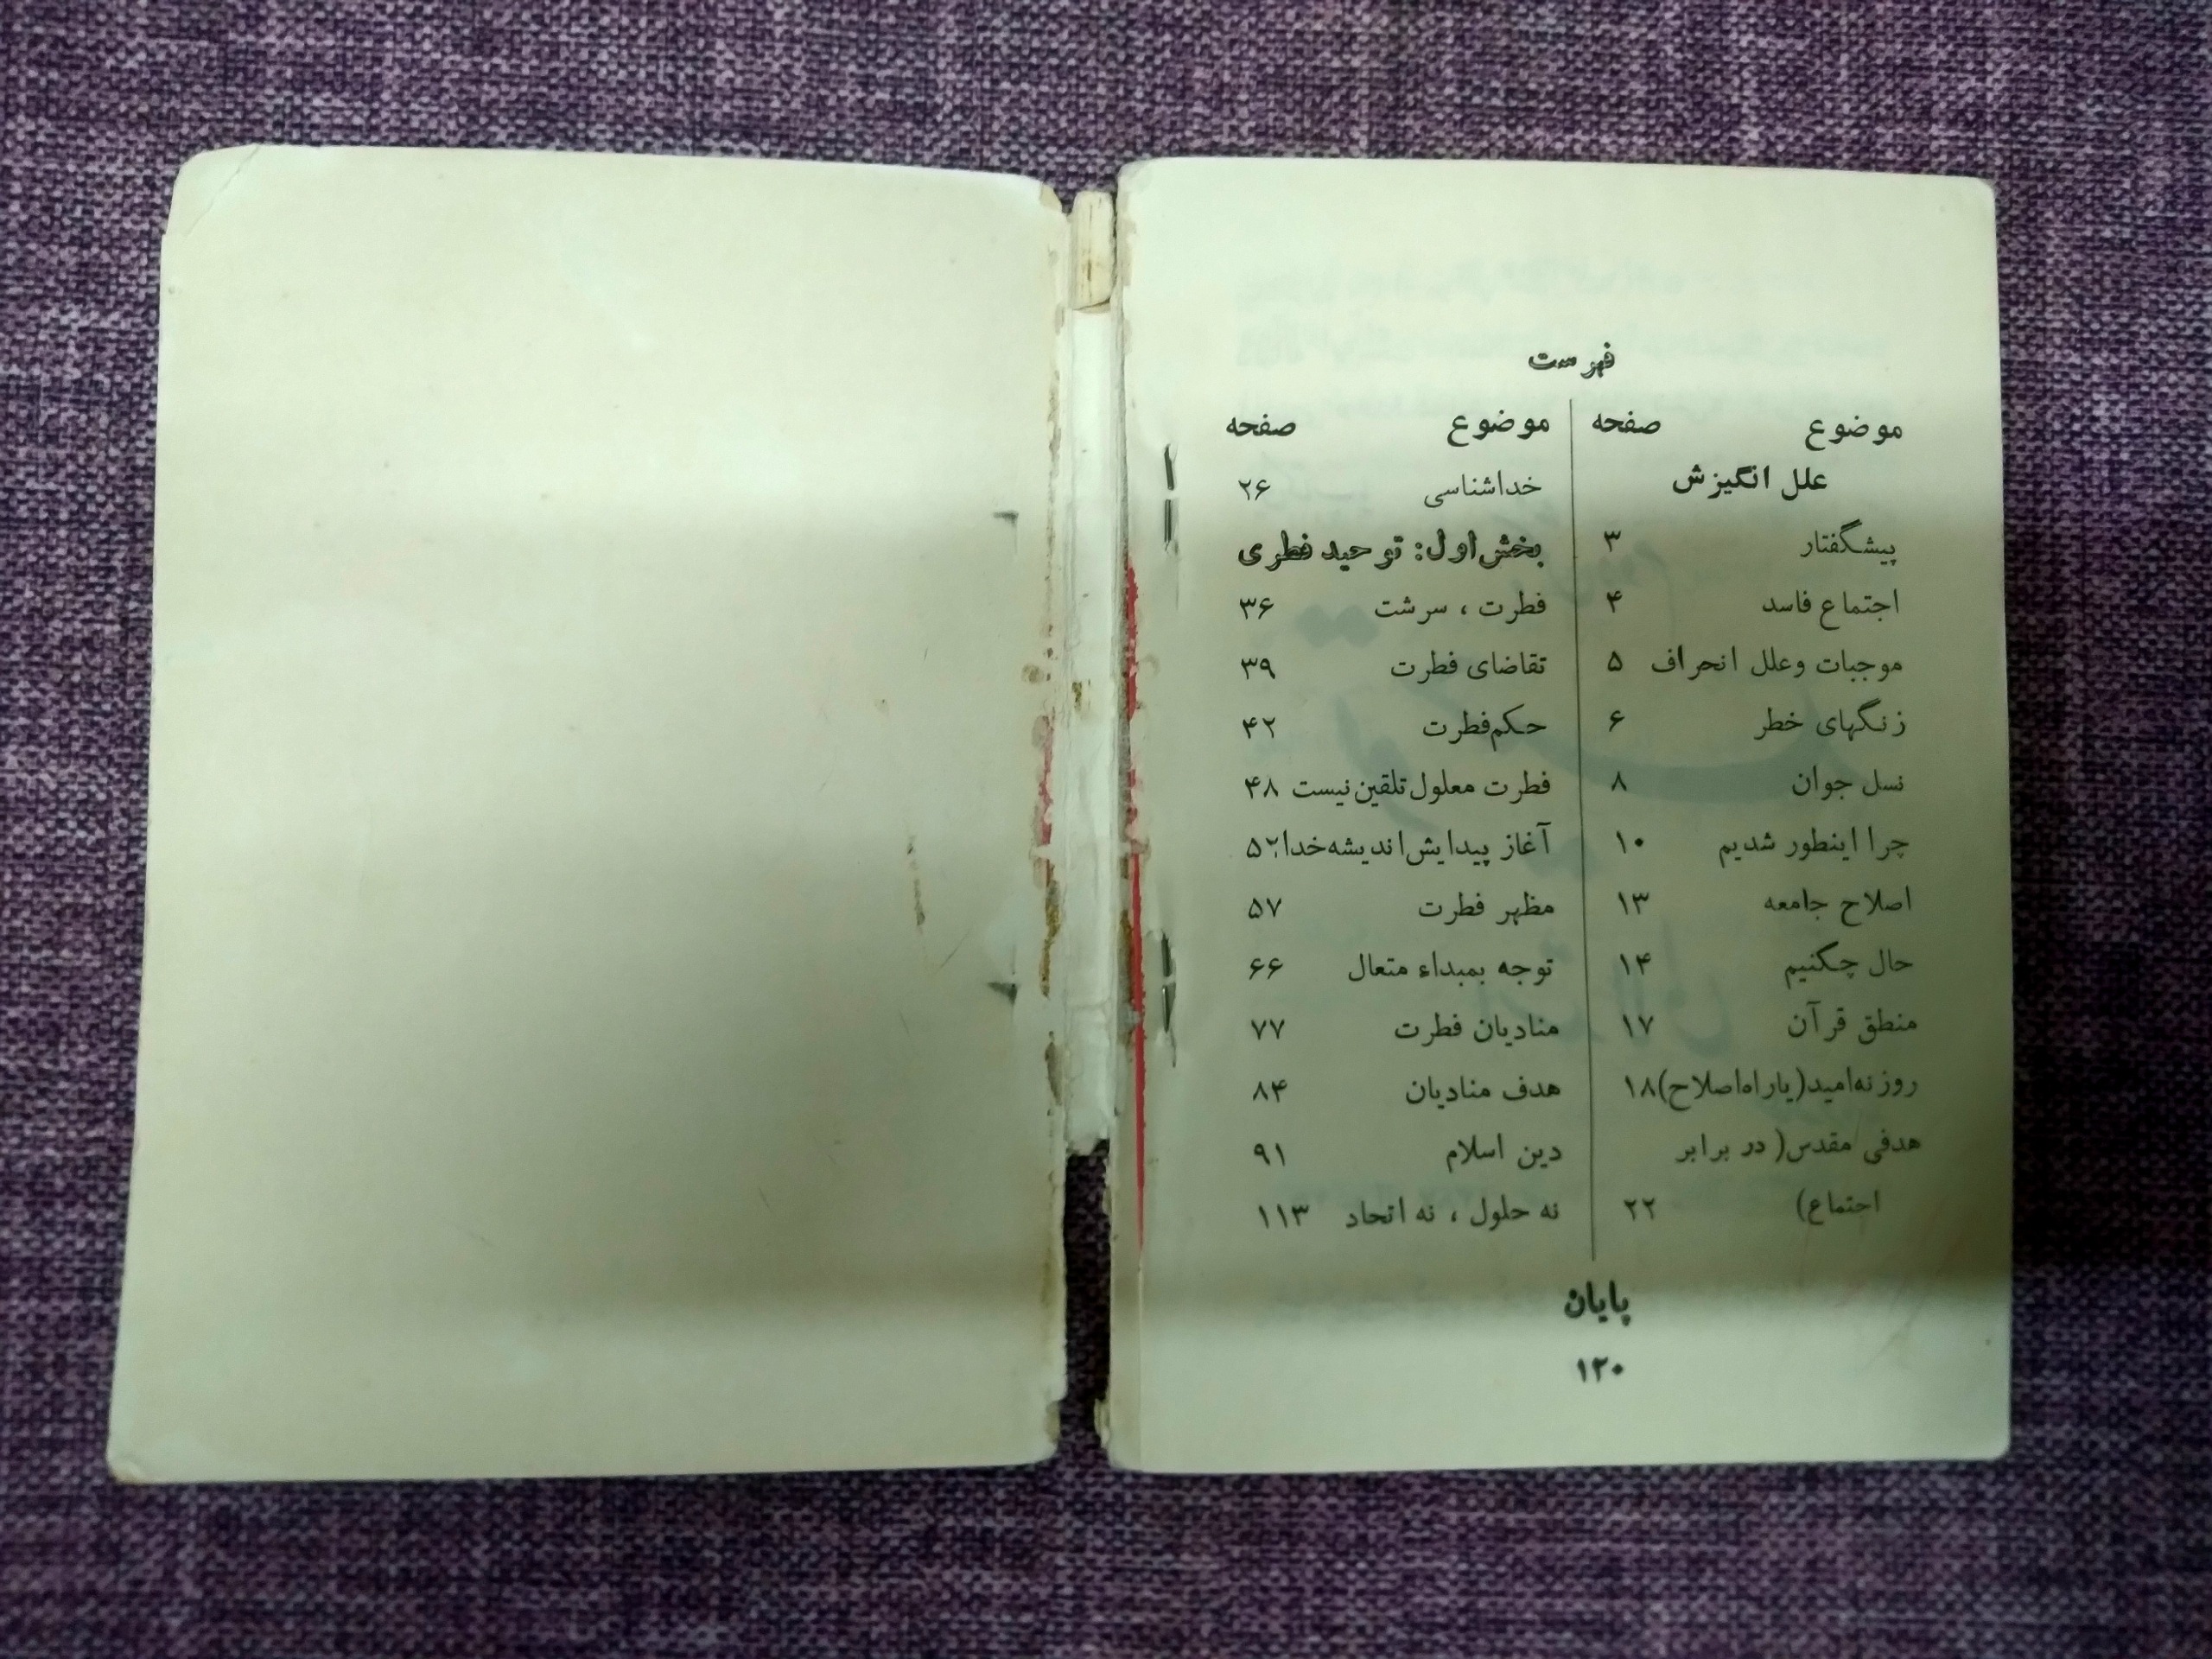 فهرست
موضوع صفحه
علل انگیزش
پیشگفتار ۳
اجتماع فاسد ۴
موجبات وعلل انحراف ۵
زنگهای خطر ۶
نسل جوان ۸
چرا اینطور شدیم ۱۰
اصلاح جامعه ۱۳
حال چکنیم ۱۴
منطق قرآن ۱۷
روزنه‌امید(یاراه‌اصلاح)۱۸
هدفی مقدس( در برابر
اجتماع) ۲۲
موضوع صفحه
خداشناسی ۲۶
بخش اول: توحید فطری
فطرت ، سرشت ۳۶
تقاضای فطرت ۳۹
حکم فطرت ۴۲
فطرت معلول تلقین نیست ۴۸
آغاز پیدایش اندیشه خدا ۵۲
مظهر فطرت ۵۷
توجه بمبداء متعال ۶۶
منادیان فطرت ۷۷
هدف منادیان ۸۴
دین اسلام ۹۱
نه حلول ، نه اتحاد ۱۱۳
پایان
۱۲۰